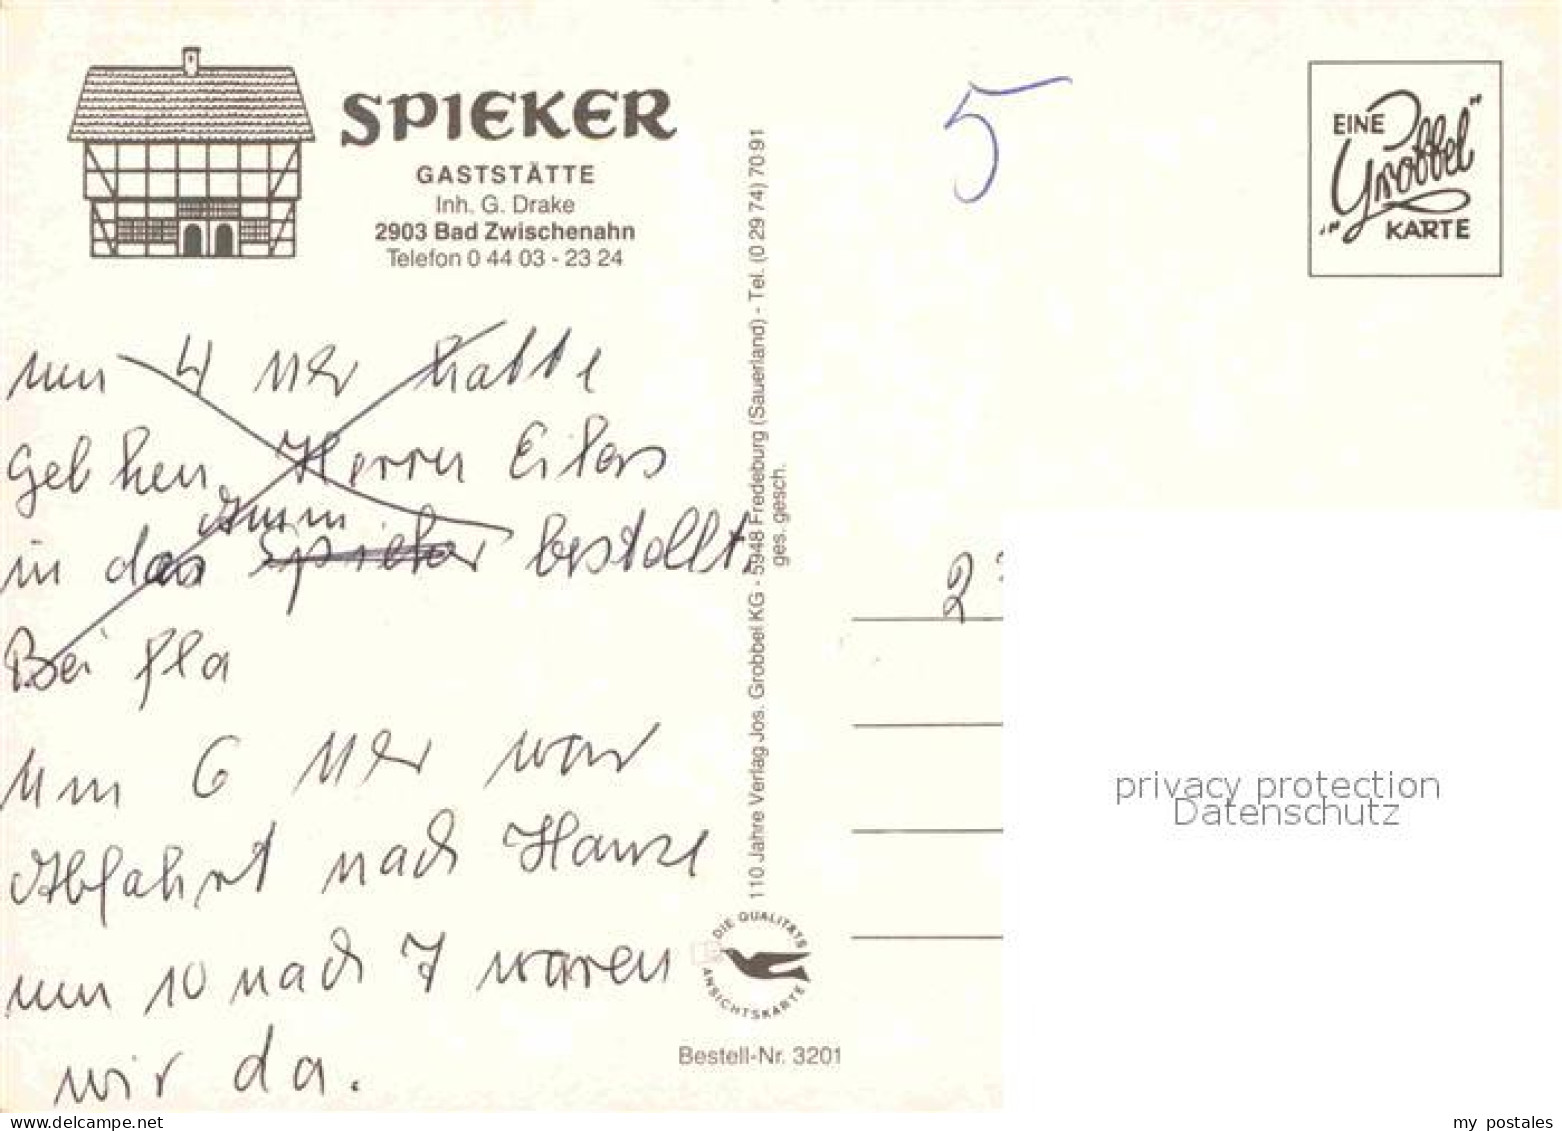 SPIEKER
GASTSTÄTTE
Inh. G. Drake
2903 Bad Zwischenahn
Telefon 0 44 03 - 23 24
5
EINE
"Grobbel"
KARTE
um 4 Uhr hatte
Herrn Eilers
in das Spieker bestellt.
Bei
Um 6 Uhr war
Abfahrt nach Hause
um 10 nach 7 waren
wir da.
110 Jahre Verlag Jos. Grobbel KG - 5948 Fredeburg (Sauerland) - Tel. (0 29 74) 70 91
ges. gesch.
DIE QUALITÄTS
ANSICHTSKARTE
Bestell-Nr. 3201
2
privacy protection
Datenschutz
delcampe.net
my_postales